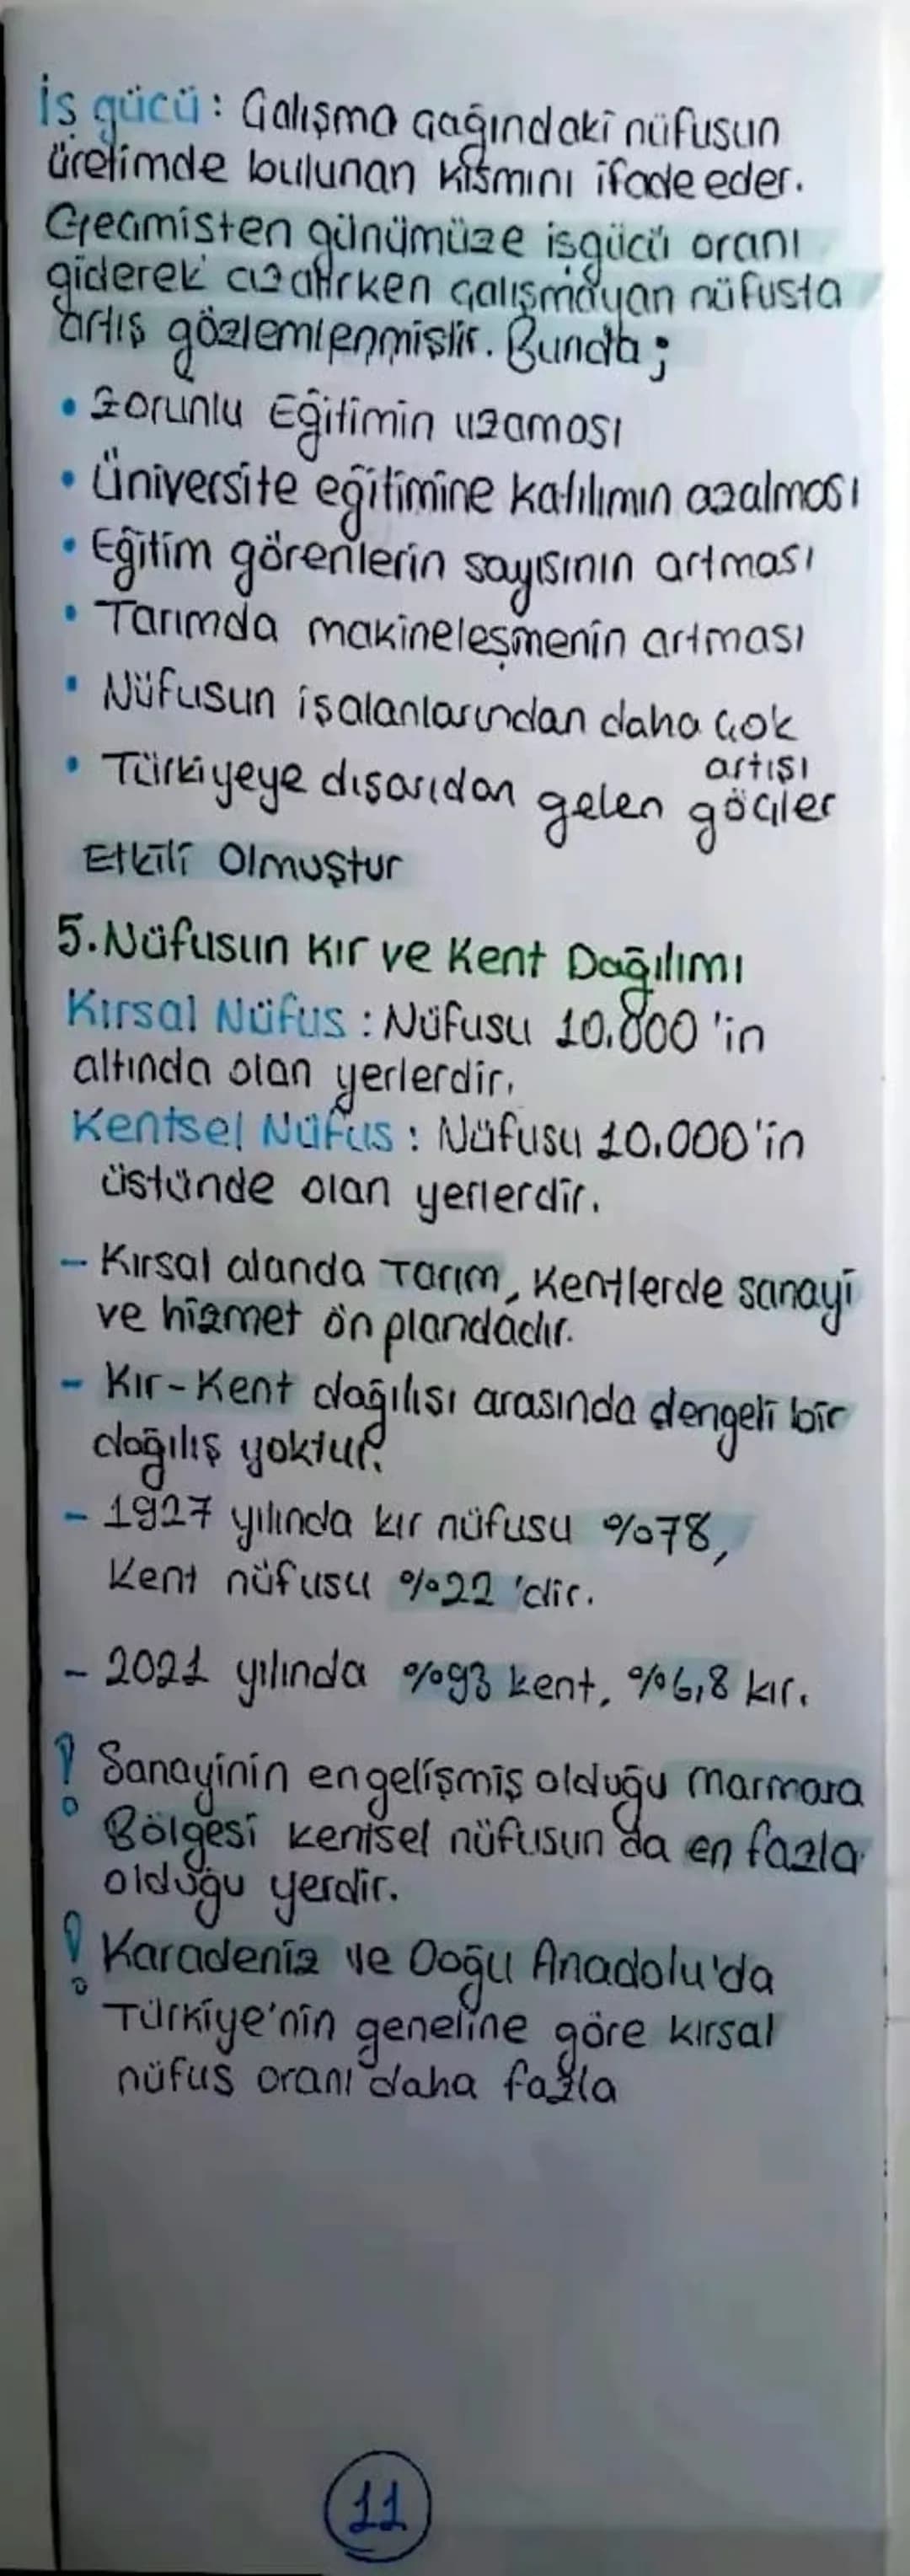 İş gücü: Çalışma çağındaki nüfusun
üretimde bulunan kısmını ifade eder.
Geçmişten günümüze işgücü oranı
giderek azalırken çalışmayan nüfusta
artış gözlemlenmiştir. Bunda;
• Zorunlu Eğitimin uzaması
• Üniversite eğitimine katılımın azalması
• Eğitim görenlerin sayısının artması
• Tarımda makineleşmenin artması
• Nüfusun işalanlarından daha çok
artışı
• Türkiyeye dışarıdan gelen göçler
Etkili Olmuştur
5. Nüfusun Kır ve Kent Dağılımı
Kırsal Nüfus : Nüfusu 10.000 'in
altında olan yerlerdir.
Kentsel Nüfus : Nüfusu 10.000'in
üstünde olan yerlerdir.
- Kırsal alanda Tarım, Kentlerde sanayi
ve hizmet ön plandadır.
- Kır-Kent dağılışı arasında dengeli bir
dağılış yoktur.
- 1927 yılında kır nüfusu %78,
Kent nüfusu %22 'dir.
- 2021 yılında %93 kent, %6,8 kır.
! Sanayinin en gelişmiş olduğu Marmara
Bölgesi kentsel nüfusun da en fazla
olduğu yerdir.
! Karadeniz ve Doğu Anadolu'da
Türkiye'nin geneline göre kırsal
nüfus oranı daha fazla
11